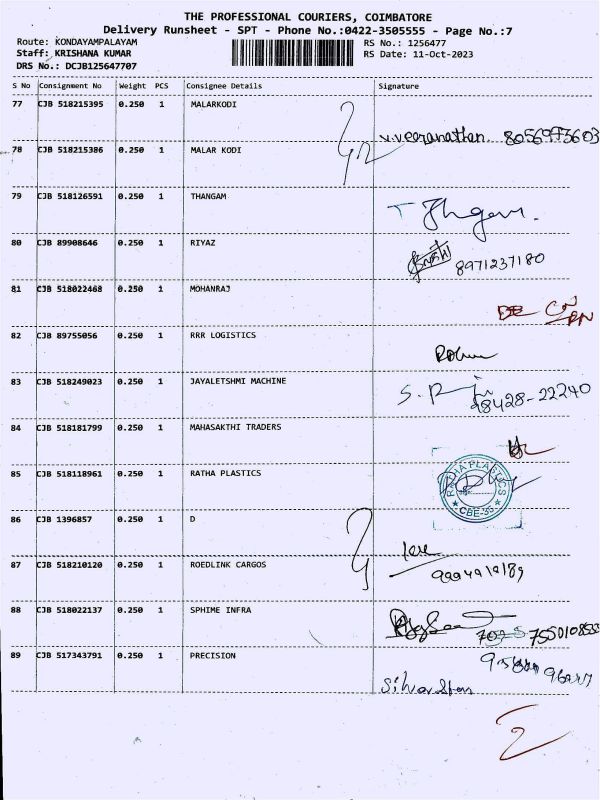 THE PROFESSIONAL COURIERS, COIMBATORE
Delivery Runsheet - SPT - Phone No.:0422-3505555 - Page No.:7
Route: KONDAYAMPALAYAM RS No.: 1256477
Staff: KRISHANA KUMAR RS Date: 11-Oct-2023
DRS No.: DCJB125647707
S No Consignment No Weight PCS Consignee Details Signature
77 CJB 518215395 0.250 1 MALARKODI
v.veeranathan
78 CJB 518215386 0.250 1 MALAR KODI
79 CJB 518126591 0.250 1 THANGAM
80 CJB 89908646 0.250 1 RIYAZ
8971237180
81 CJB 518022468 0.250 1 MOHANRAJ
82 CJB 89755056 0.250 1 RRR LOGISTICS
83 CJB 518249023 0.250 1 JAYALETSHMI MACHINE
98428-22240
84 CJB 518181799 0.250 1 MAHASAKTHI TRADERS
85 CJB 518118961 0.250 1 RATHA PLASTICS
RATHA PLASTICS
CBE-35
86 CJB 1396857 0.250 1 D
87 CJB 518210120 0.250 1 ROEDLINK CARGOS
88 CJB 518022137 0.250 1 SPHIME INFRA
89 CJB 517343791 0.250 1 PRECISION